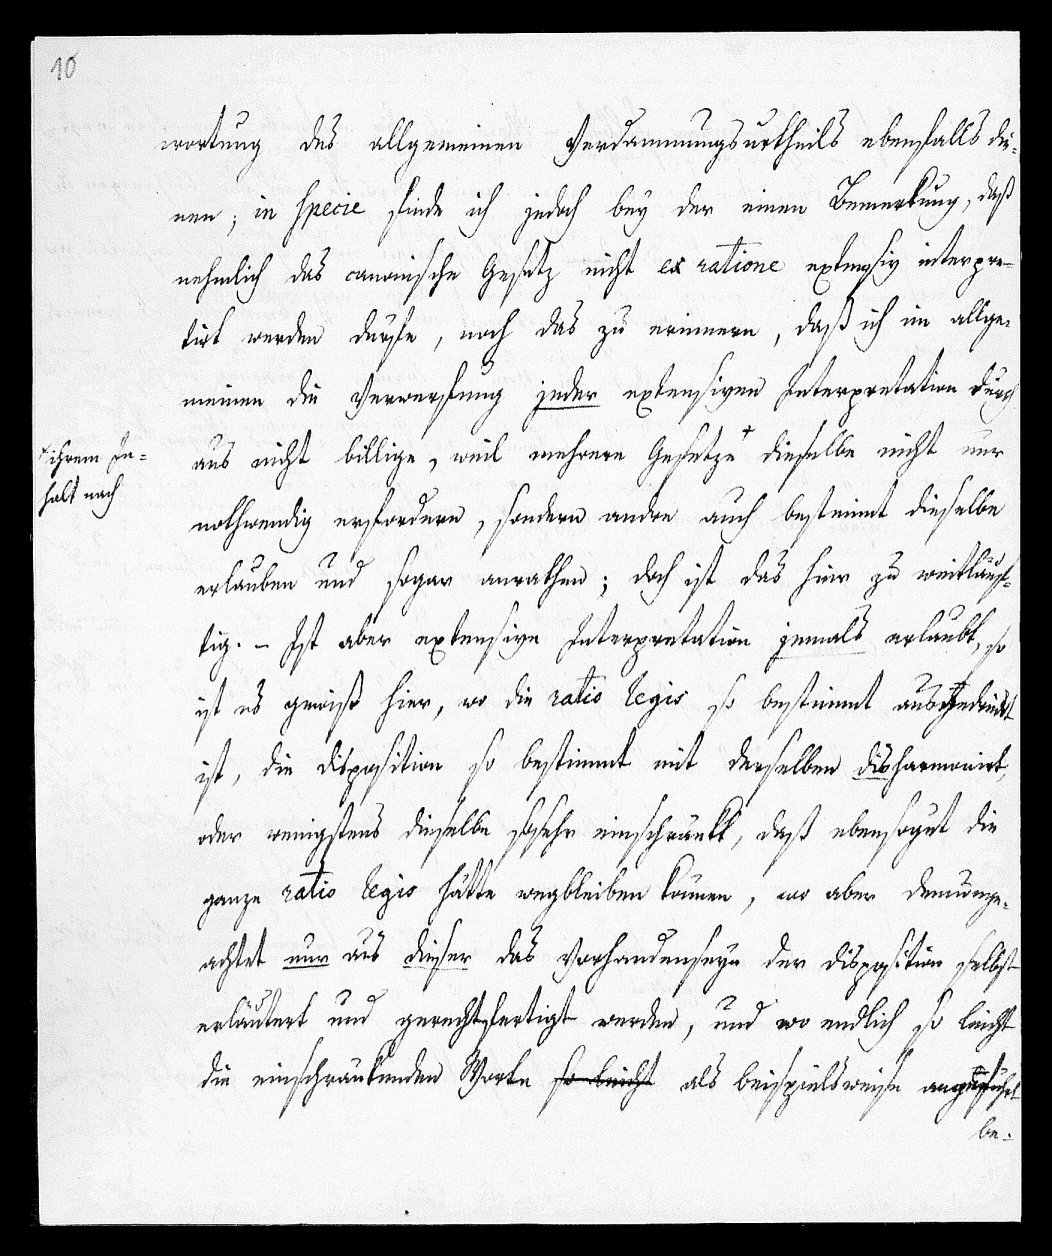 10
wortung des allgemeinen Verdammungsurtheils ebenfalls die-
nen; in specie finde ich jedoch bey der einen Bemerkung, daß
nehmlich das canonische Gesetz nicht ex ratione extensiv interpre-
tirt werden dürfe, noch das zu erinnern, daß ich im allge-
meinen die Verwerfung jeder extensiven Interpretation durch
aus nicht billige, weil mehrere Gesetze + dieselbe nicht nur
+ ihrem In-
halt nach
nothwendig erfordern, sondern andre auch bestimmt dieselbe
erlauben und sogar anrathen; doch ist das hier zu weitläuf-
tig. – Ist aber extensive Interpretation jemals erlaubt, so
ist es gewiß hier, wo die ratio legis so bestimmt ausgedrückt
ist, die disposition so bestimmt mit derselben disharmonirt,
oder wenigstens dieselbe so sehr einschränkt, daß ebensogut die
ganze ratio legis hätte wegbleiben können, wo aber demunge-
achtet nur aus dieser das Vorhandenseyn der disposition selbst
erläutert und gerechtfertigt werden, und wo endlich so leicht
die einschränkenden Worte so leicht als beispielsweise angeführt
be-